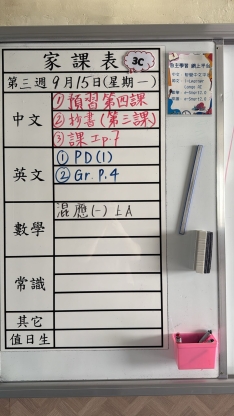 家課表 3C
第三週 9月15日(星期一)
中文
① 預習第四課
② 抄書(第三課)
③ 課工p.7
英文
① PD(1)
② Gr. P.4
數學
混應(一) 上A
常識
其它
值日生
自主學習 網上平台